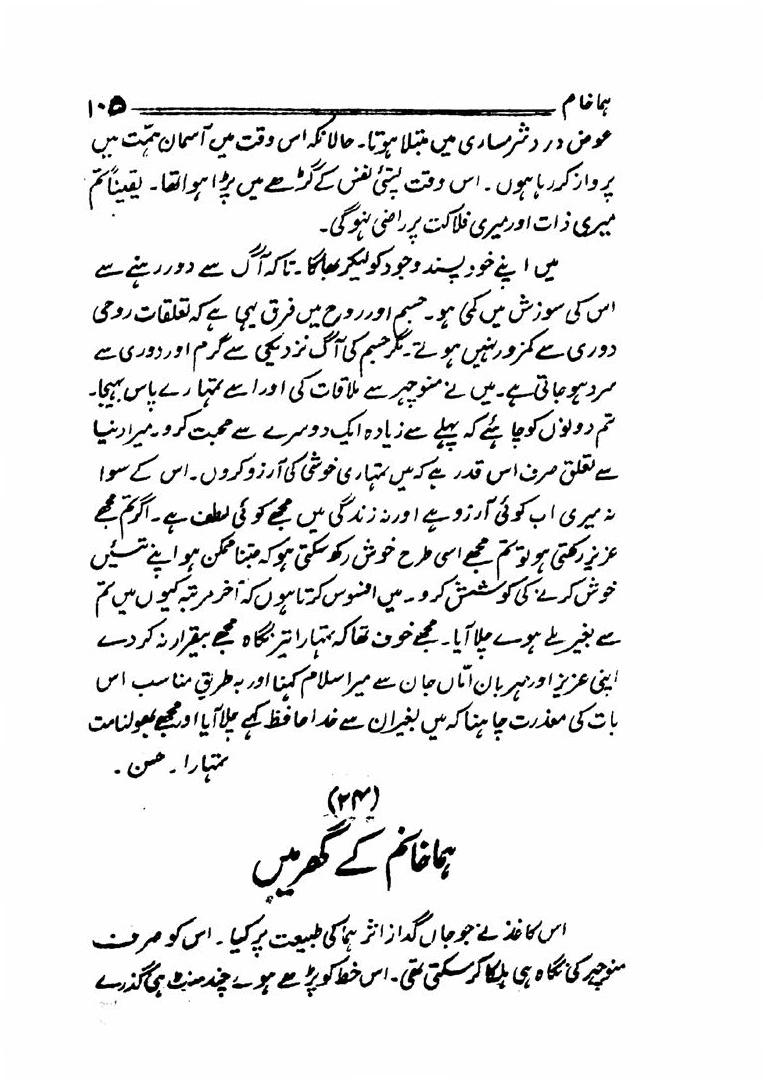 ہما خانم ۱۰۵
عوض درد شرمساری میں مبتلا ہوتا۔ حالانکہ اس وقت میں آسمان ہمّت میں
پرواز کر رہا ہوں۔ اس وقت پستئ نفس کے گڑھے میں پڑا ہوا تھا۔ یقیناً تم
میری ذات اور میری فلاکت پر راضی نہوگی۔
میں اپنے خود پسند وجود کو لیکر بھاگا۔ تاکہ آگ سے دور رہنے سے
اس کی سوزش میں کمی ہو۔ جسم اور روح میں فرق یہی ہے کہ تعلقات روحی
دوری سے کمزور نہیں ہوتے۔ مگر جسم کی آگ نزدیکی سے گرم اور دوری سے
سرد ہو جاتی ہے۔ میں نے منوچہر سے ملاقات کی اور اسے تمہارے پاس بھیجا۔
تم دونوں کو چاہئے کہ پہلے سے زیادہ ایک دوسرے سے محبت کرو۔ میرا دنیا
سے تعلق صرف اس قدر ہے کہ میں تمہاری خوشی کی آرزو کروں۔ اس کے سوا
نہ میری اب کوئی آرزو ہے اور نہ زندگی میں مجھے کوئی لطف ہے۔ اگر تم مجھے
عزیز رکھتی ہو تو تم مجھے اسی طرح خوش رکھ سکتی ہو کہ جتنا ممکن ہو اپنے تئیں
خوش کرنے کی کوشش کرو۔ میں افسوس کرتا ہوں کہ آخر مرتبہ کیوں میں تم
سے بغیر ملے ہوے چلا آیا۔ مجھے خوف تھا کہ تمہارا تیر نگاہ مجھے بیقرار نہ کر دے
اپنی عزیز اور مہربان امّاں جان سے میرا سلام کہنا اور بہ طریق مناسب اس
بات کی معذرت چاہنا کہ میں بغیر ان سے خدا حافظ کہے چلا آیا اور مجھے بھولنا مت
تمہارا۔ حسن۔
(۲۴)
ہما خانم کے گھر میں
اس کاغذ نے جو جاں گداز اثر ہما کی طبیعت پر کیا۔ اس کو صرف
منوچہر کی نگاہ ہی ہلکا کر سکتی تھی۔ اس خط کو پڑھے ہوے چند منٹ ہی گذرے